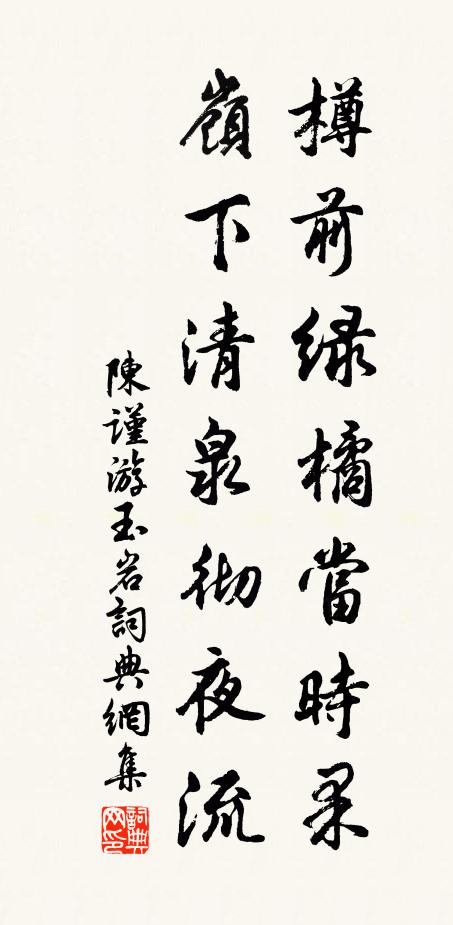 樽前緑橘當時果
嶺下清泉彻夜流
陳謹游玉岩詞典網集
詞典
网印